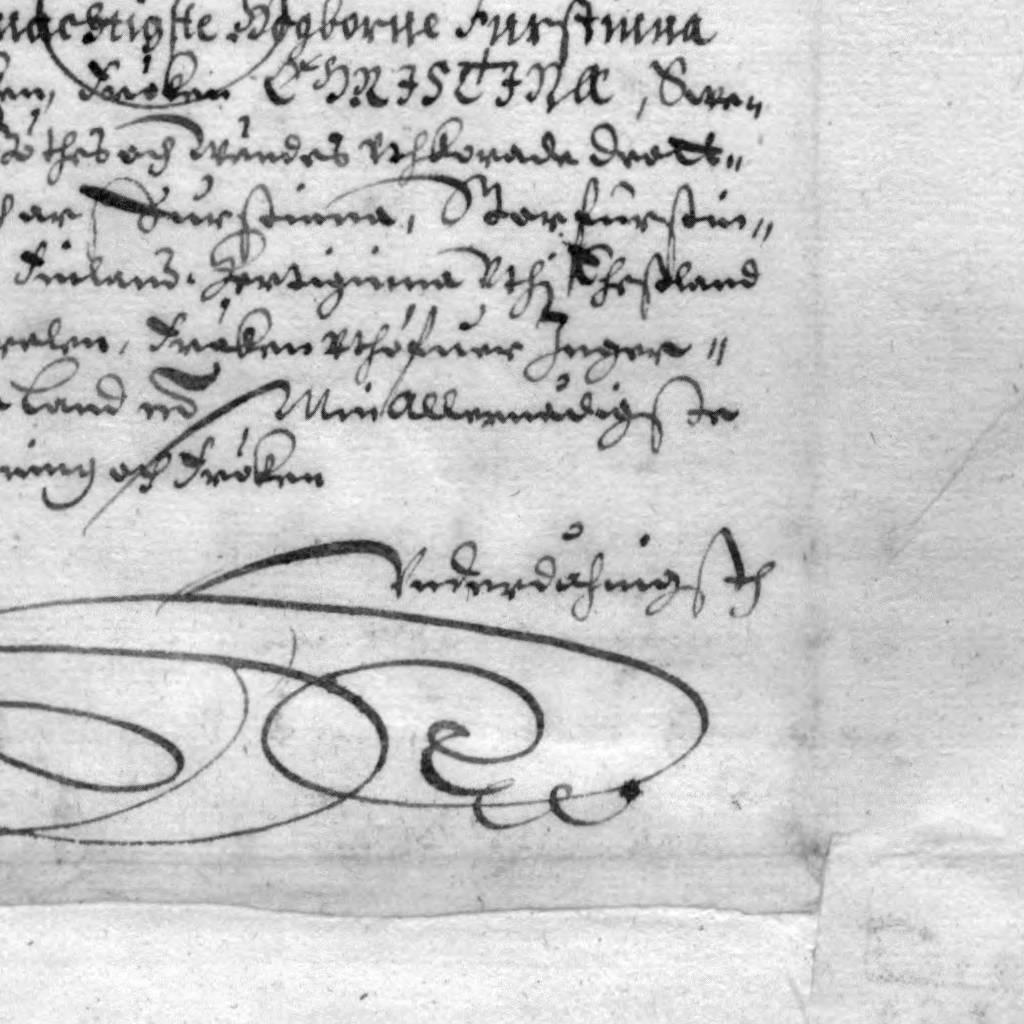 mächtigste Högborne Furstinna
ken, Fröken CHRISTINA, Swe-
Göthes och Wändes Uthkorade Drott-
och ar Furstinna, Storfurstin-
Finland. Hertiginna Uthj Ehestland
relen, Fröken Uthöfuer Inger-
e Land Min Allernådigste
ning och Fröken
Underdåhnigsth